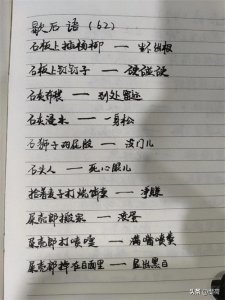 歇后语（62）
石板上插杨柳 — 生不出根
石板上钉钉子 — 硬碰硬
石夹布袋 — 到处
石 — 一身松
石狮子的屁股 — 没门儿
石头人 — 死心眼儿
拾着麦子打烧饼卖 — 净赚
屎壳郎搬家 — 滚蛋
屎壳郎打喷嚏 — 满嘴喷粪
屎壳郎掉在白面里 — 显出黑白
头条